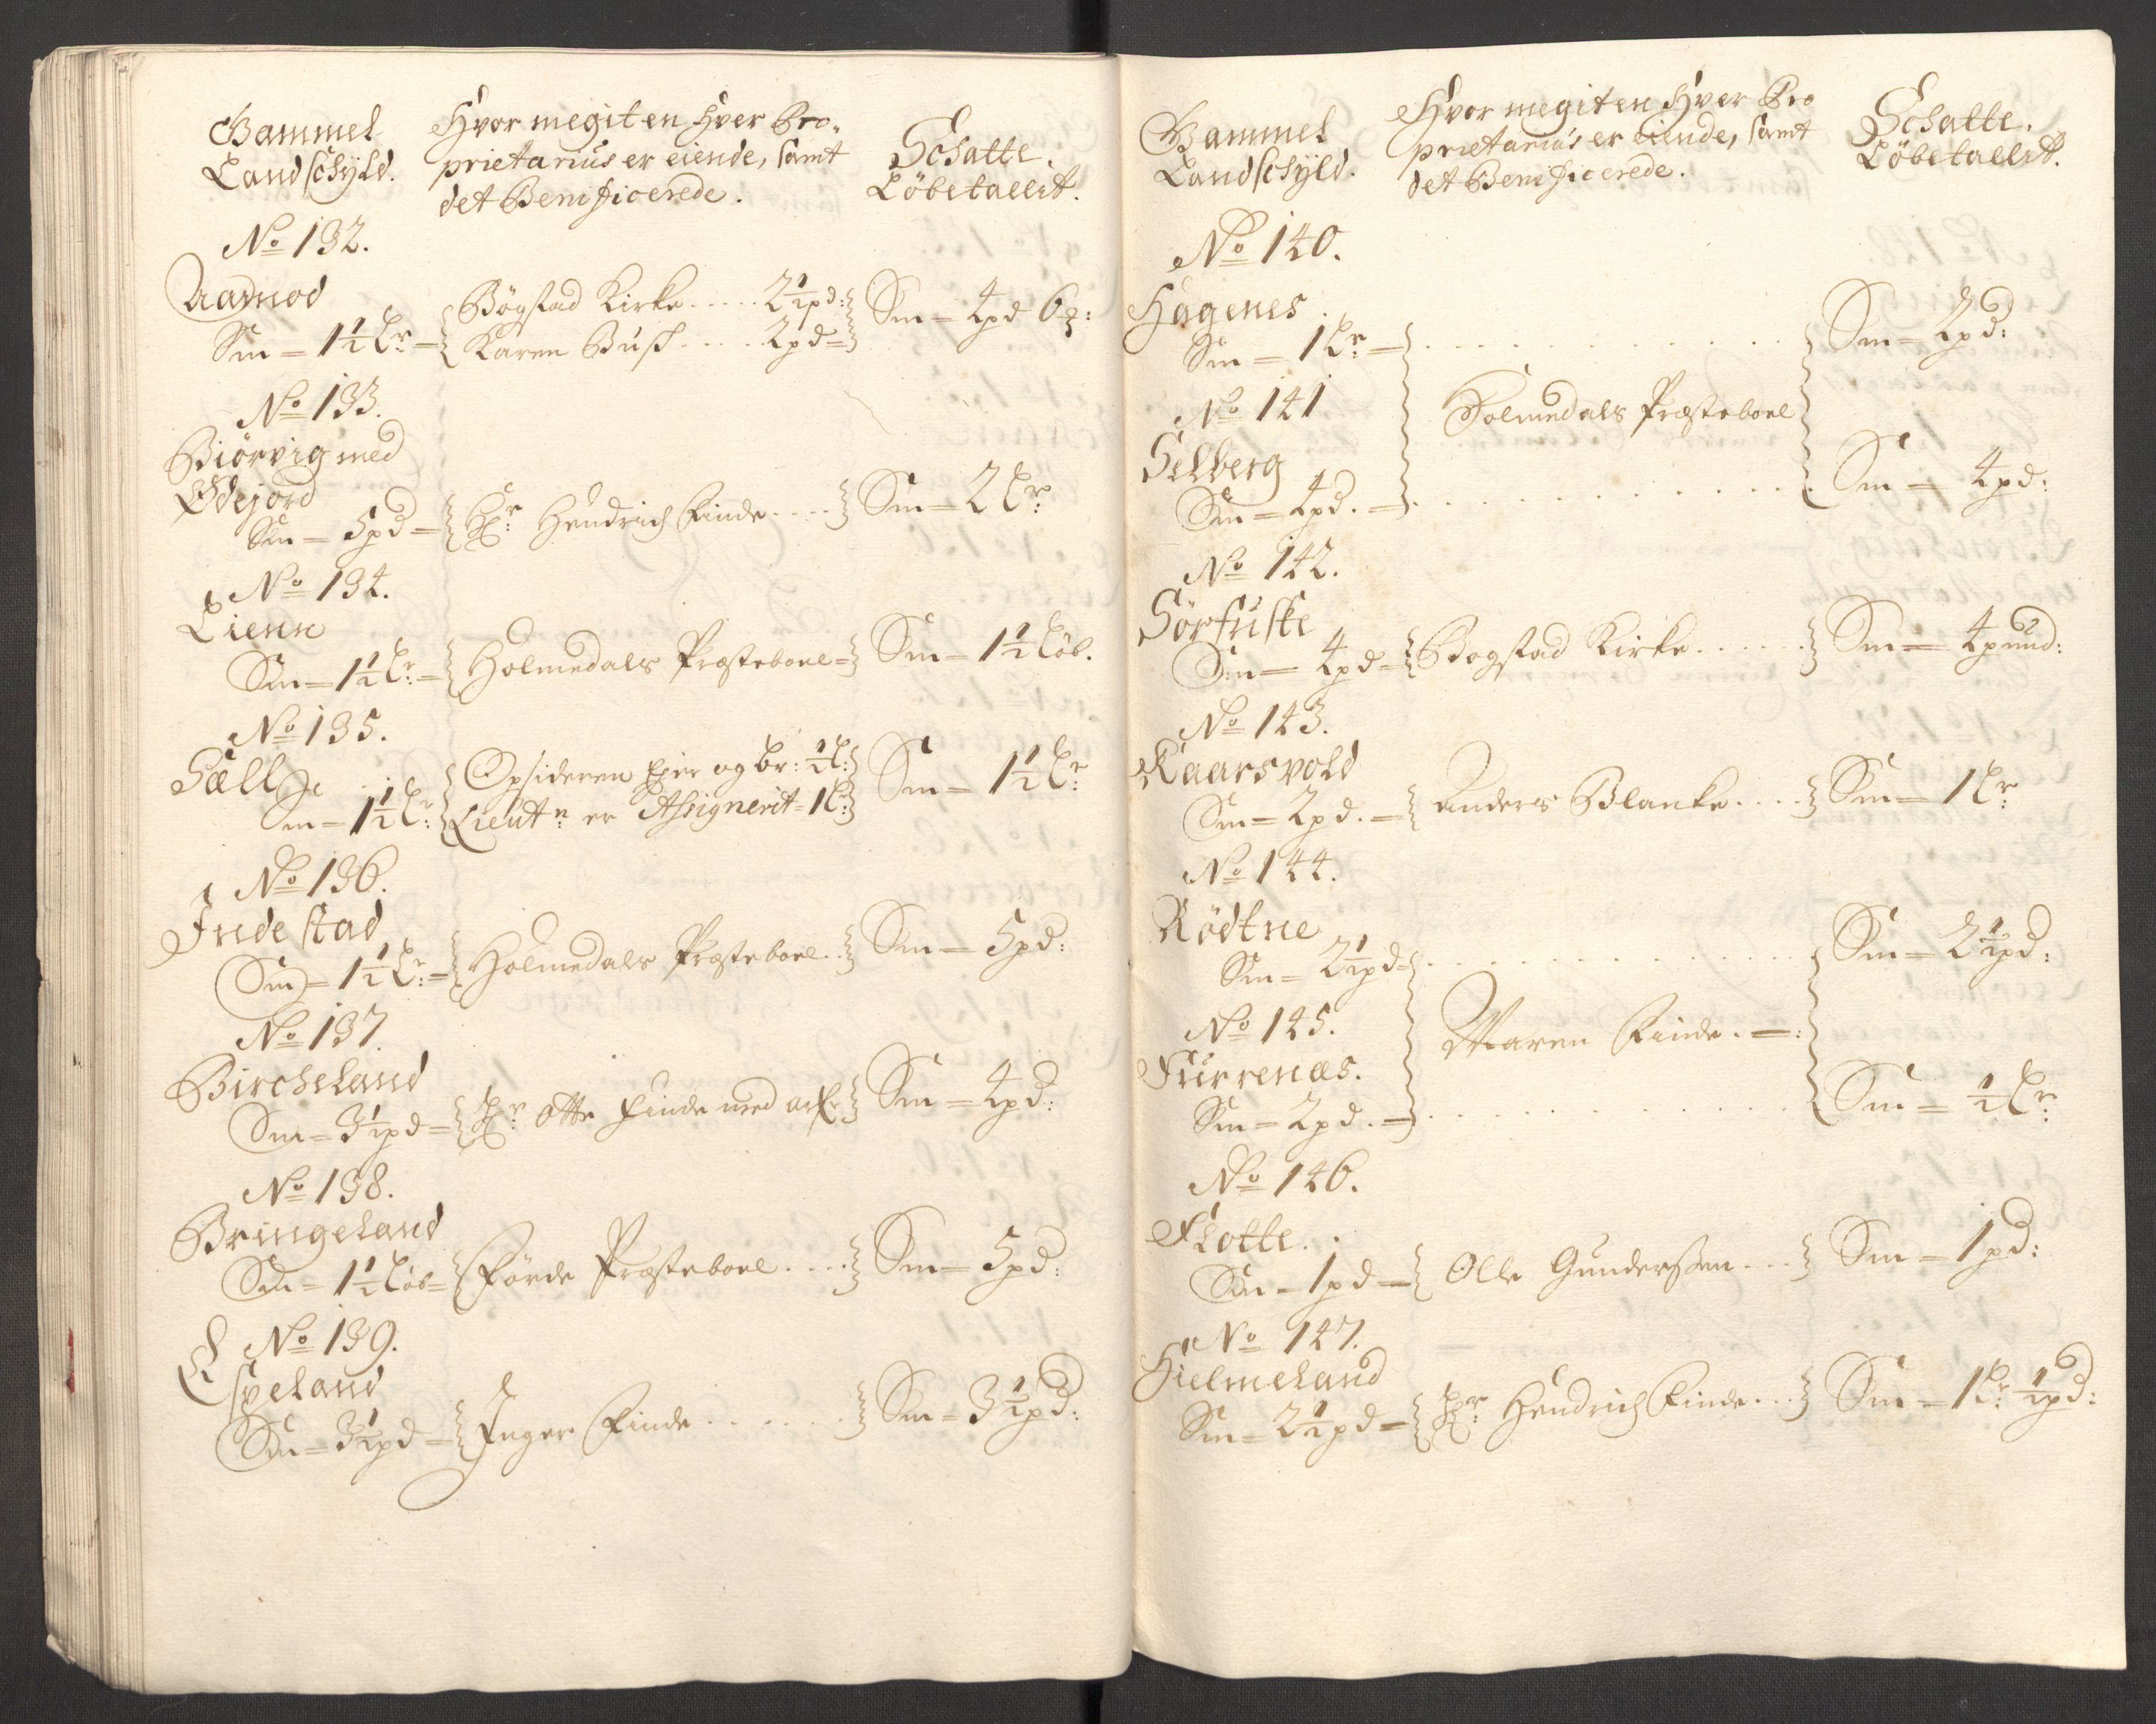 Gammel
Landschyld.
Hvor megit en hver Pro-
prietarius er eiende, samt
det Benificerede.
Schatte
Löbetallit.
No 132.
Aamod
Sm = 1½ Lr =
Bögstad Kirke ..... 2½ pd:
Karen Busch ..... 2 pd =
Sm = 4 pd 6
No 133.
Biörvig med
Ödejord
Sm = 5 pd =
Hr Hendrich Finde ....
Sm = 2 Lr:
No 134.
Eienn
Sm = 1½ Lr: =
Holmedals Præsteboel =
Sm = 1½ Löb.
No 135.
Sælle
Sm = 1½ Lr:
Opsideren Eier og br: ½ L:
Lieutn: er Assignerit = 1 Lr:
Sm = 1½ Lr:
No 136.
Indestad
Sm = 1½ Lr: =
Holmedals Præsteboel ..
Sm = 5 pd:
No 137
Bircheland
Sm = 3½ pd =
Hr: Otte Finde med arf:
Sm = 4 pd:
No 138.
Bringeland
Sm = 1½ Löb =
Förde Præsteboel ....
Sm = 5 pd:
No 139.
Espeland
Sm = 3½ pd =
Inger Finde ......
Sm = 3½ pd:
Gammel
Landschyld.
Hvor megit en hver Pro
prietarius er eiende, samt
det Benificerede.
Schatte.
Löbetallit.
No 140.
Hagenes.
Sm = 1 Lr =
Sm = 2 pd:
No 141
Holmedals Præsteboel
Selberg
Sm = 4 pd. =
Sm = 4 pd:
No 142.
Sörfuske
Sm = 4 pd =
Bogstad Kirke ......
Sm = 4 pund:
No 143.
Kaarsvold
Sm = 2 pd. =
Anders Blanke ....
Sm = 1 Lr:
No 144.
Rödtne
Sm = 2½ pd =
Sm = 2½ pd:
No 145.
Maren Finde. =
Furrenæs.
Sm = 2 pd. =
Sm = ½ Lr:
No 146.
Flotte.
Sm = 1 pd =
Olle Gunderssen ...
Sm = 1 pd:
No 147.
Hielmeland
Sm = 2½ pd =
Hr: Hendrich Finde ...
Sm = 1 Lr: ½ pd: